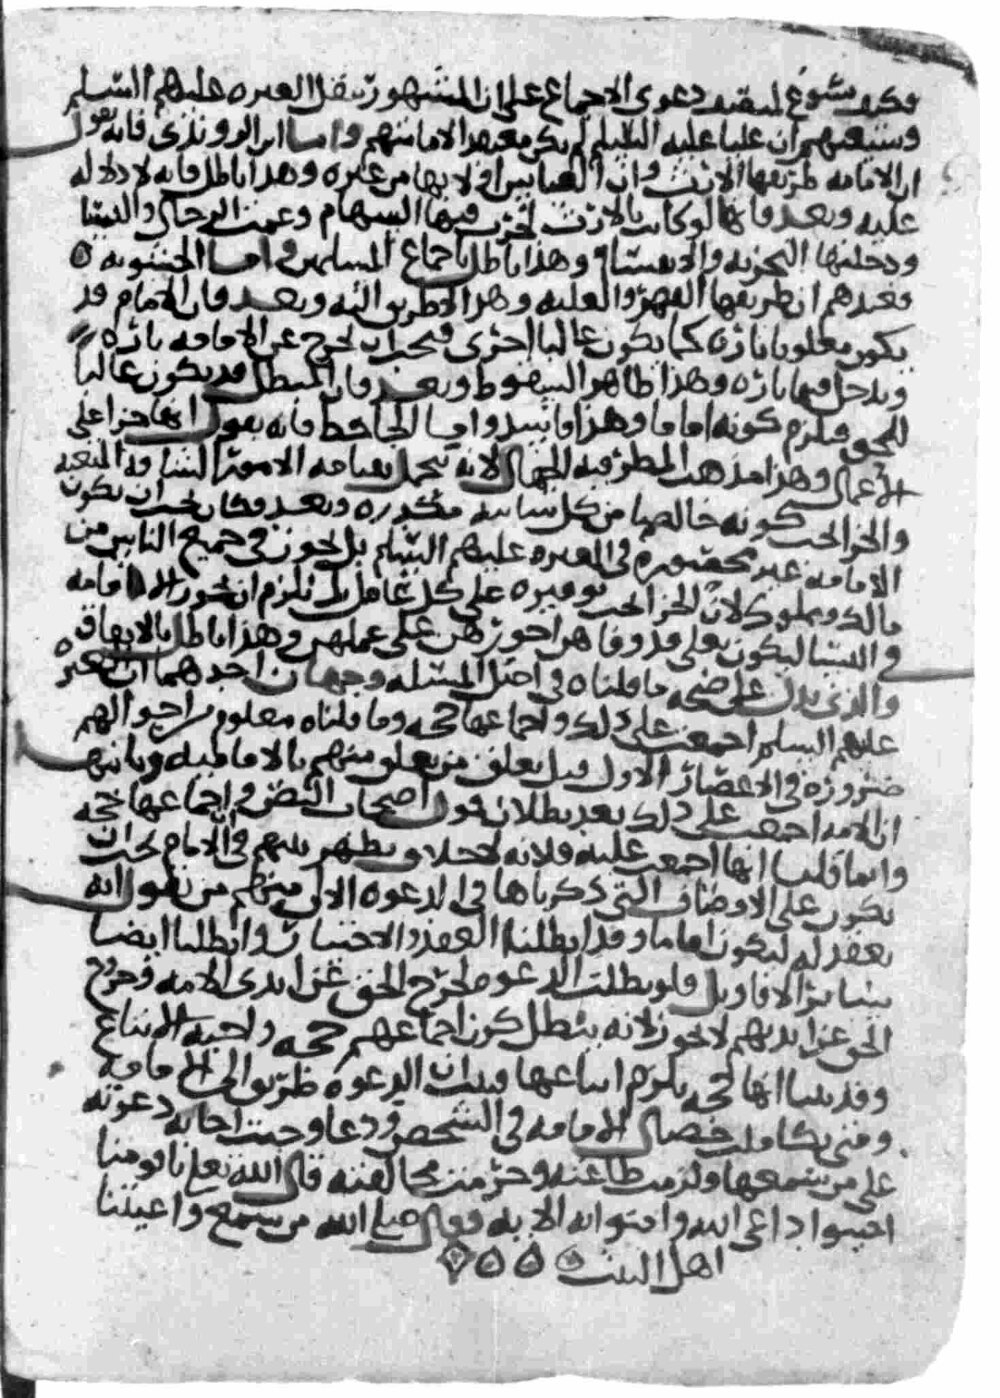 وكيف يسوغ لمنصف دعوى الاجماع على ان المشهور بنقل العتره عليهم السلم
وشيعتهم ان عليا عليه السلم لم يكن معتمد الامامتهم واما ابن الروندي فانه يقول
ان الامامه طريقها الارث وان العباس اولا بها من غيره وهذا باطل فانه لا دلاله
عليه وبعد فانها لو كانت بالارث لجرت فيها السهام وعمت الرجال والنسا
ودخلتها التجزيه والانقسام وهذا باطل باجماع المسلمين واما الحشويه
فعندهم ان طريقها القهر والغلبه وهذا لا طريق اليه وبعد فان الامام قد
يكون مغلوبا تاره كما يكون غالبا اخرى فيجب ان يخرج عن الامامه تاره
ويدخل فيها تاره وهذا ظاهر السقوط وبعد فان المبطل قد يكون غالبا
للمحق فيلزم كونه اماما وهذا فاسد واما الجاحظ فانه يقول انها جزا على
الاعمال وهذا مذهب المطرفيه الجهال لانه تحمل بقيامه الامور الشاقه المتعبه
والجزا يجب كونه خالصا من كل شايبه مكدره وبعد فكان يجب ان تكون
الامامه غير مقصوره في العتره عليهم السلم بل تجوز في جميع الناس من
مالك ومملوك لان الجزا يجب توفيره على كل عامل بل يلزم ان تجوز الامامه
في النسا ليكون تعلى قد وفاهن اجورهن على عملهن وهذا باطل بالاتفاق
والذي يدل على صحه ما قلناه في اصل المسله وجهان احدهما ان العتره
عليهم السلم اجمعت على ذلك واجماعها حجه وما قلناه معلوم من احوالهم
ضروره في الاعصار الاول قبل تعلق من تعلق منهم بالاماميه وثانيها
ان الامه اجمعت على ذلك بعد بطلان قول اصحاب النص واجماعها حجه
وانما قلنا انها اجمعت عليه فلانه لا خلاف يظهر بينهم في الامام يجب ان
يكون على الاوصاف التي ذكرناها في الدعوه الا ان منهم من يقول انه
يعقد له ليكون اماما وقد ابطلنا العقد والاختيار وابطلنا ايضا
سائر الاقاويل فلو بطلت الدعوه لخرج الحق عن ايدي الامه وخروج
الحق عن ايديهم لا يجوز لانه يبطل كون اجماعهم حجه واجبه الاتباع
وقد بينا انها حجه يلزم اتباعها فبان ان الدعوه طريق الى الامامه
ومتى تكاملت خصال الامامه في الشخص ودعا وجبت اجابه دعوته
على من سمعها ولزمت طاعته وحرمت مخالفته قال الله تعلى يا قومنا
اجيبوا داعي الله وامنوا به الايه وقال صلى الله من سمع واعيتنا
اهل البيت